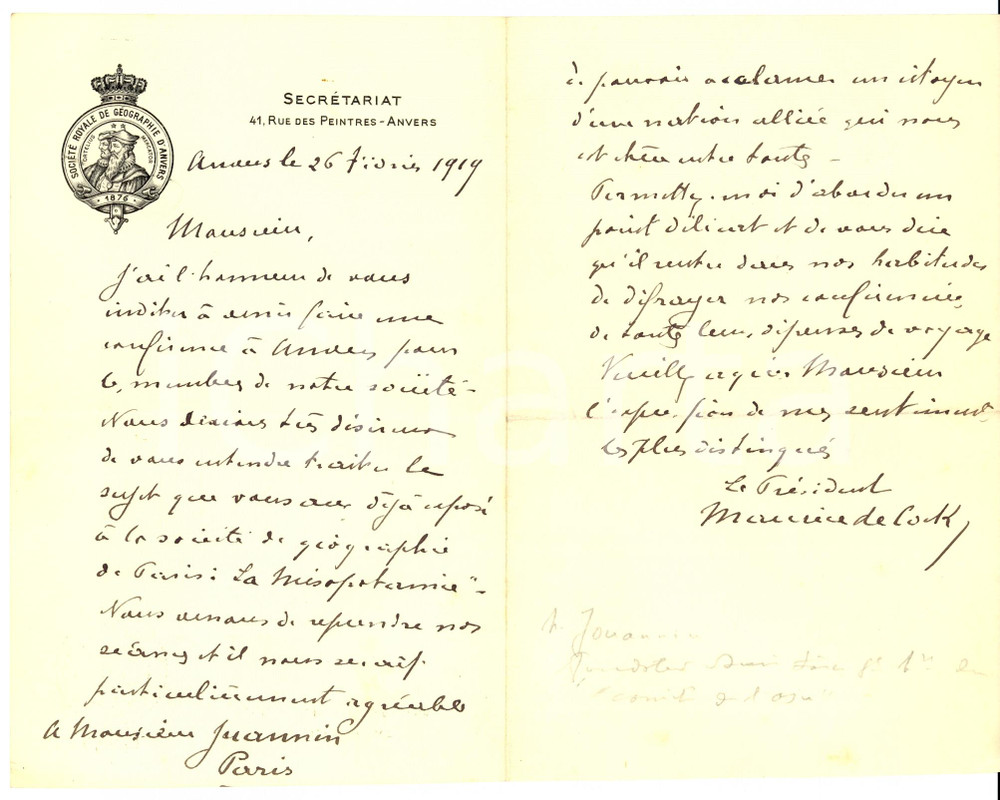 SOCIÉTÉ ROYALE DE GÉOGRAPHIE D'ANVERS
ORTELIUS MERCATOR
1876
SECRÉTARIAT
41, RUE DES PEINTRES - ANVERS
Anvers le 26 février 1919
Monsieur,
J'ai l'honneur de vous
inviter à venir faire une
conférence à Anvers pour
les membres de notre société -
Nous serions très désireux
de vous entendre traiter le
sujet que vous avez déjà exposé
à la société de géographie
de Paris : La Mésopotamie" -
Nous venons de reprendre nos
séances et il nous serait
particulièrement agréable
A Monsieur Jouannin
Paris
de pouvoir acclamer un citoyen
d'une nation alliée qui nous
est chère entre toutes -
Permettez-moi d'aborder un
point délicat et de vous dire
qu'il rentre dans nos habitudes
de défrayer nos conférenciers
de toutes leurs dépenses de voyage
Veuillez agréer Monsieur
l'expression de mes sentiments
les plus distingués
Le Président
Maurice de Cock
Jouannin
comité de l'Asie